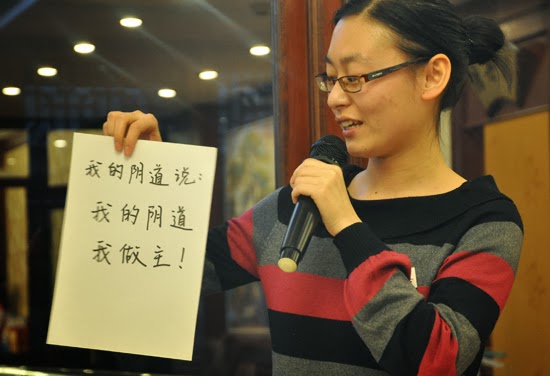 我的阴道说：
我的阴道
我做主！